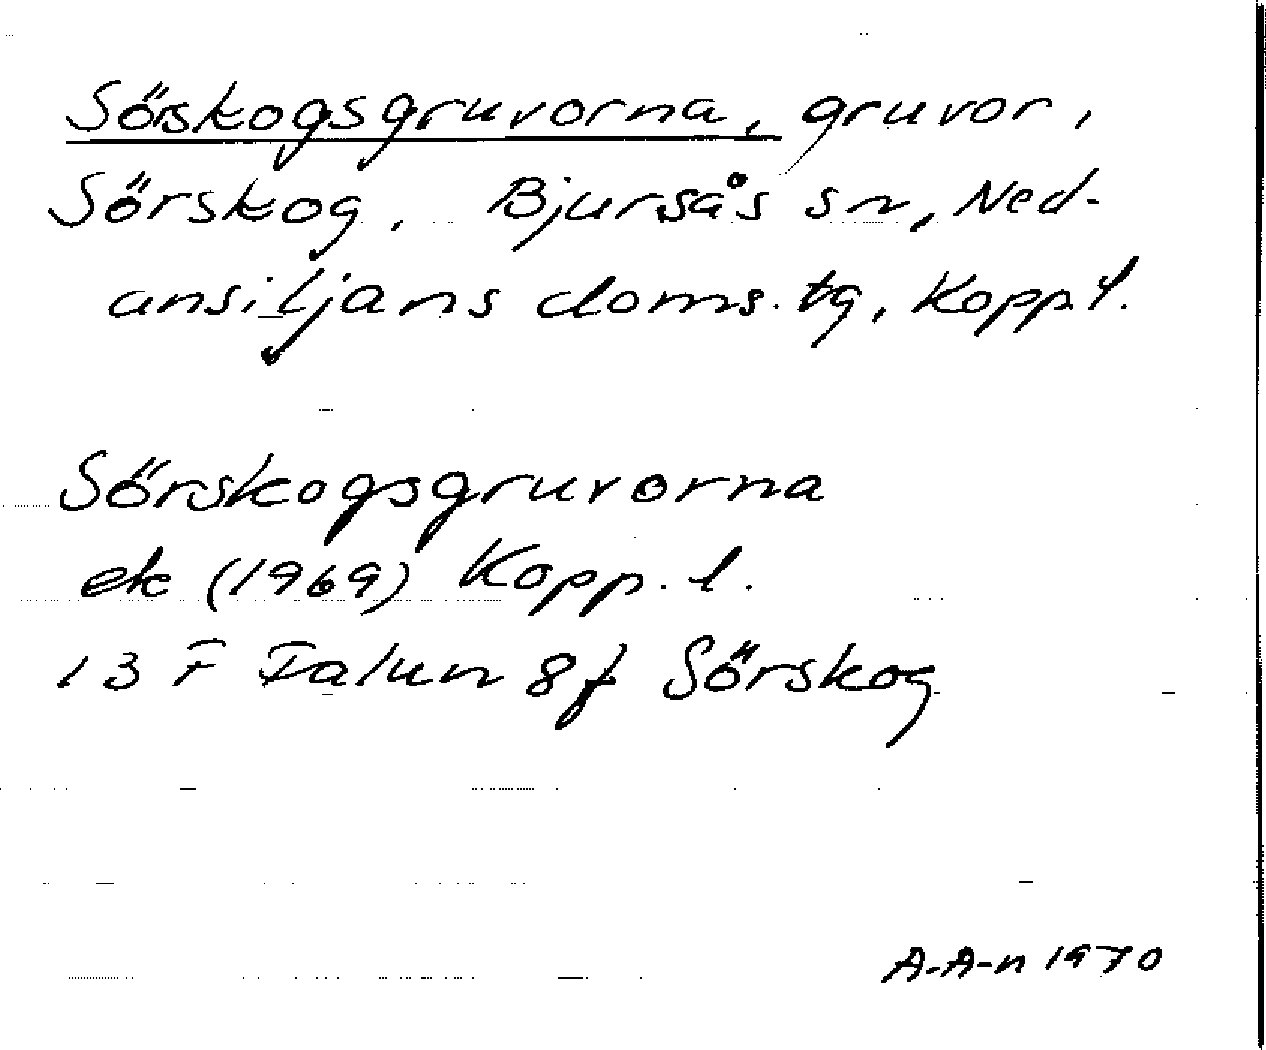 Sörskogsgruvorna, gruvor,
Sörskog, Bjursås sn, Ned-
ansiljans doms. tg, Kopp.l.
Sörskogsgruvorna
ek (1969) Kopp. l.
13 F Falun 8f Sörskog
A-A-n 1970